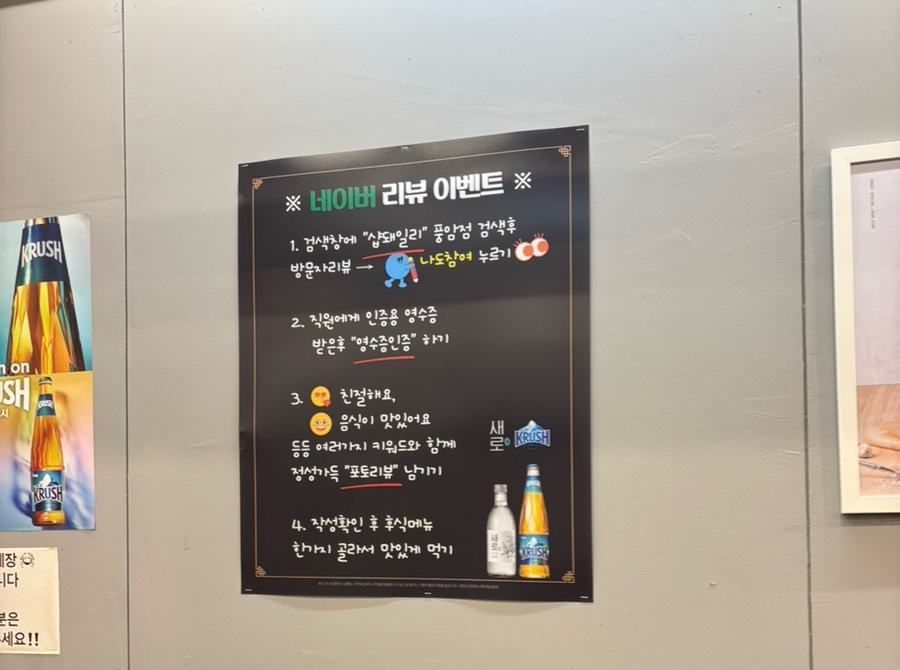 ※ 네이버 리뷰 이벤트 ※
1. 검색창에 "샵돼일리" 풍암점 검색후
방문자리뷰 → 나도참여 누르기
2. 직원에게 인증용 영수증
받은후 "영수증인증" 하기
3. 친절해요,
음식이 맛있어요
등등 여러가지 키워드와 함께
정성가득 "포토리뷰" 남기기
4. 작성확인 후 후식메뉴
한가지 골라서 맛있게 먹기
새로
KRUSH
새로
KRUSH
KRUSH
on
KRUSH
니다
분은
세요!!